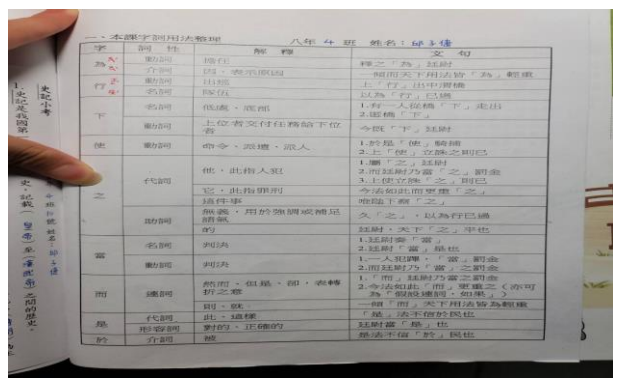 一、本課字詞用法整理 八年 4 班 姓名：邱子倢
字 詞性 解釋 文句
為 動詞 擔任 釋之「為」廷尉
介詞 因，表示原因 一傾而天下用法皆「為」輕重
行 動詞 出巡 上「行」出中渭橋
名詞 隊伍 以為「行」已過
下 名詞 低處、底部 1.有一人從橋「下」走出
2.逃橋「下」
動詞 上位者交付任務給下位者 今既「下」廷尉
使 動詞 命令、派遣、派人 1.於是「使」騎捕
2.上「使」立誅之則已
之 代詞 他，此指人犯 1.屬「之」廷尉
2.而廷尉乃當「之」罰金
3.上使立誅「之」則已
它，此指罪刑 今法如此而更重「之」
這件事 唯陛下察「之」
助詞 無義，用於強調或補足語氣 久「之」，以為行已過
的 廷尉，天下「之」平也
當 名詞 判決 1.廷尉奏「當」
2.廷尉「當」是也
動詞 判決 1.一人犯蹕，「當」罰金
2.而廷尉乃「當」之罰金
而 連詞 然而、但是、卻，表轉折之意 1.「而」廷尉乃當之罰金
2.今法如此「而」更重之（亦可為「假設連詞，如果」）
則、就 一傾「而」天下用法皆為輕重
是 代詞 此、這樣 「是」法不信於民也
形容詞 對的、正確的 廷尉當「是」也
於 介詞 被 是法不信「於」民也
史記小考
班 號 姓名：邱子倢
1.史記是我國第
史，記載（黃帝）至（漢武帝）之間的歷史。